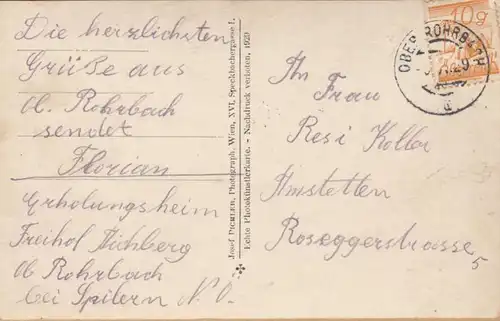 Die herzlichsten
Grüße aus
Ob. Rohrbach
sendet
Florian
Erholungsheim
Freihof Aichberg
Ob Rohrbach
bei Spilern N. O.
Josef PICHLER, Photograph, Wien, XVI, Speckbachergasse 1.
Echte Photokünstlerkarte. - Nachdruck verboten, 1929
10g
OBER ROHRBACH
Frau
Resi Koller
Amstetten
Roseggerstrasse 5